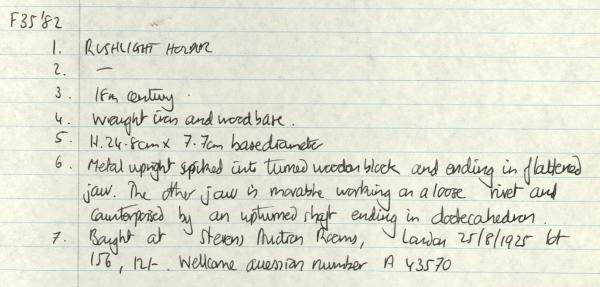 F35'82
1. RUSHLIGHT HOLDER
2. —
3. 18th century.
4. Wrought iron and wood base.
5. H. 24.8cm x 7.7cm base diameter
6. Metal upright spiked into turned wooden block and ending in flattened
jaw. The other jaw is movable working on a loose rivet and
counterpoised by an upturned shaft ending in dodecahedron.
7. Bought at Stevens Auction Rooms, London 25/8/1925 lot
156, 12/-. Wellcome accession number A 43570